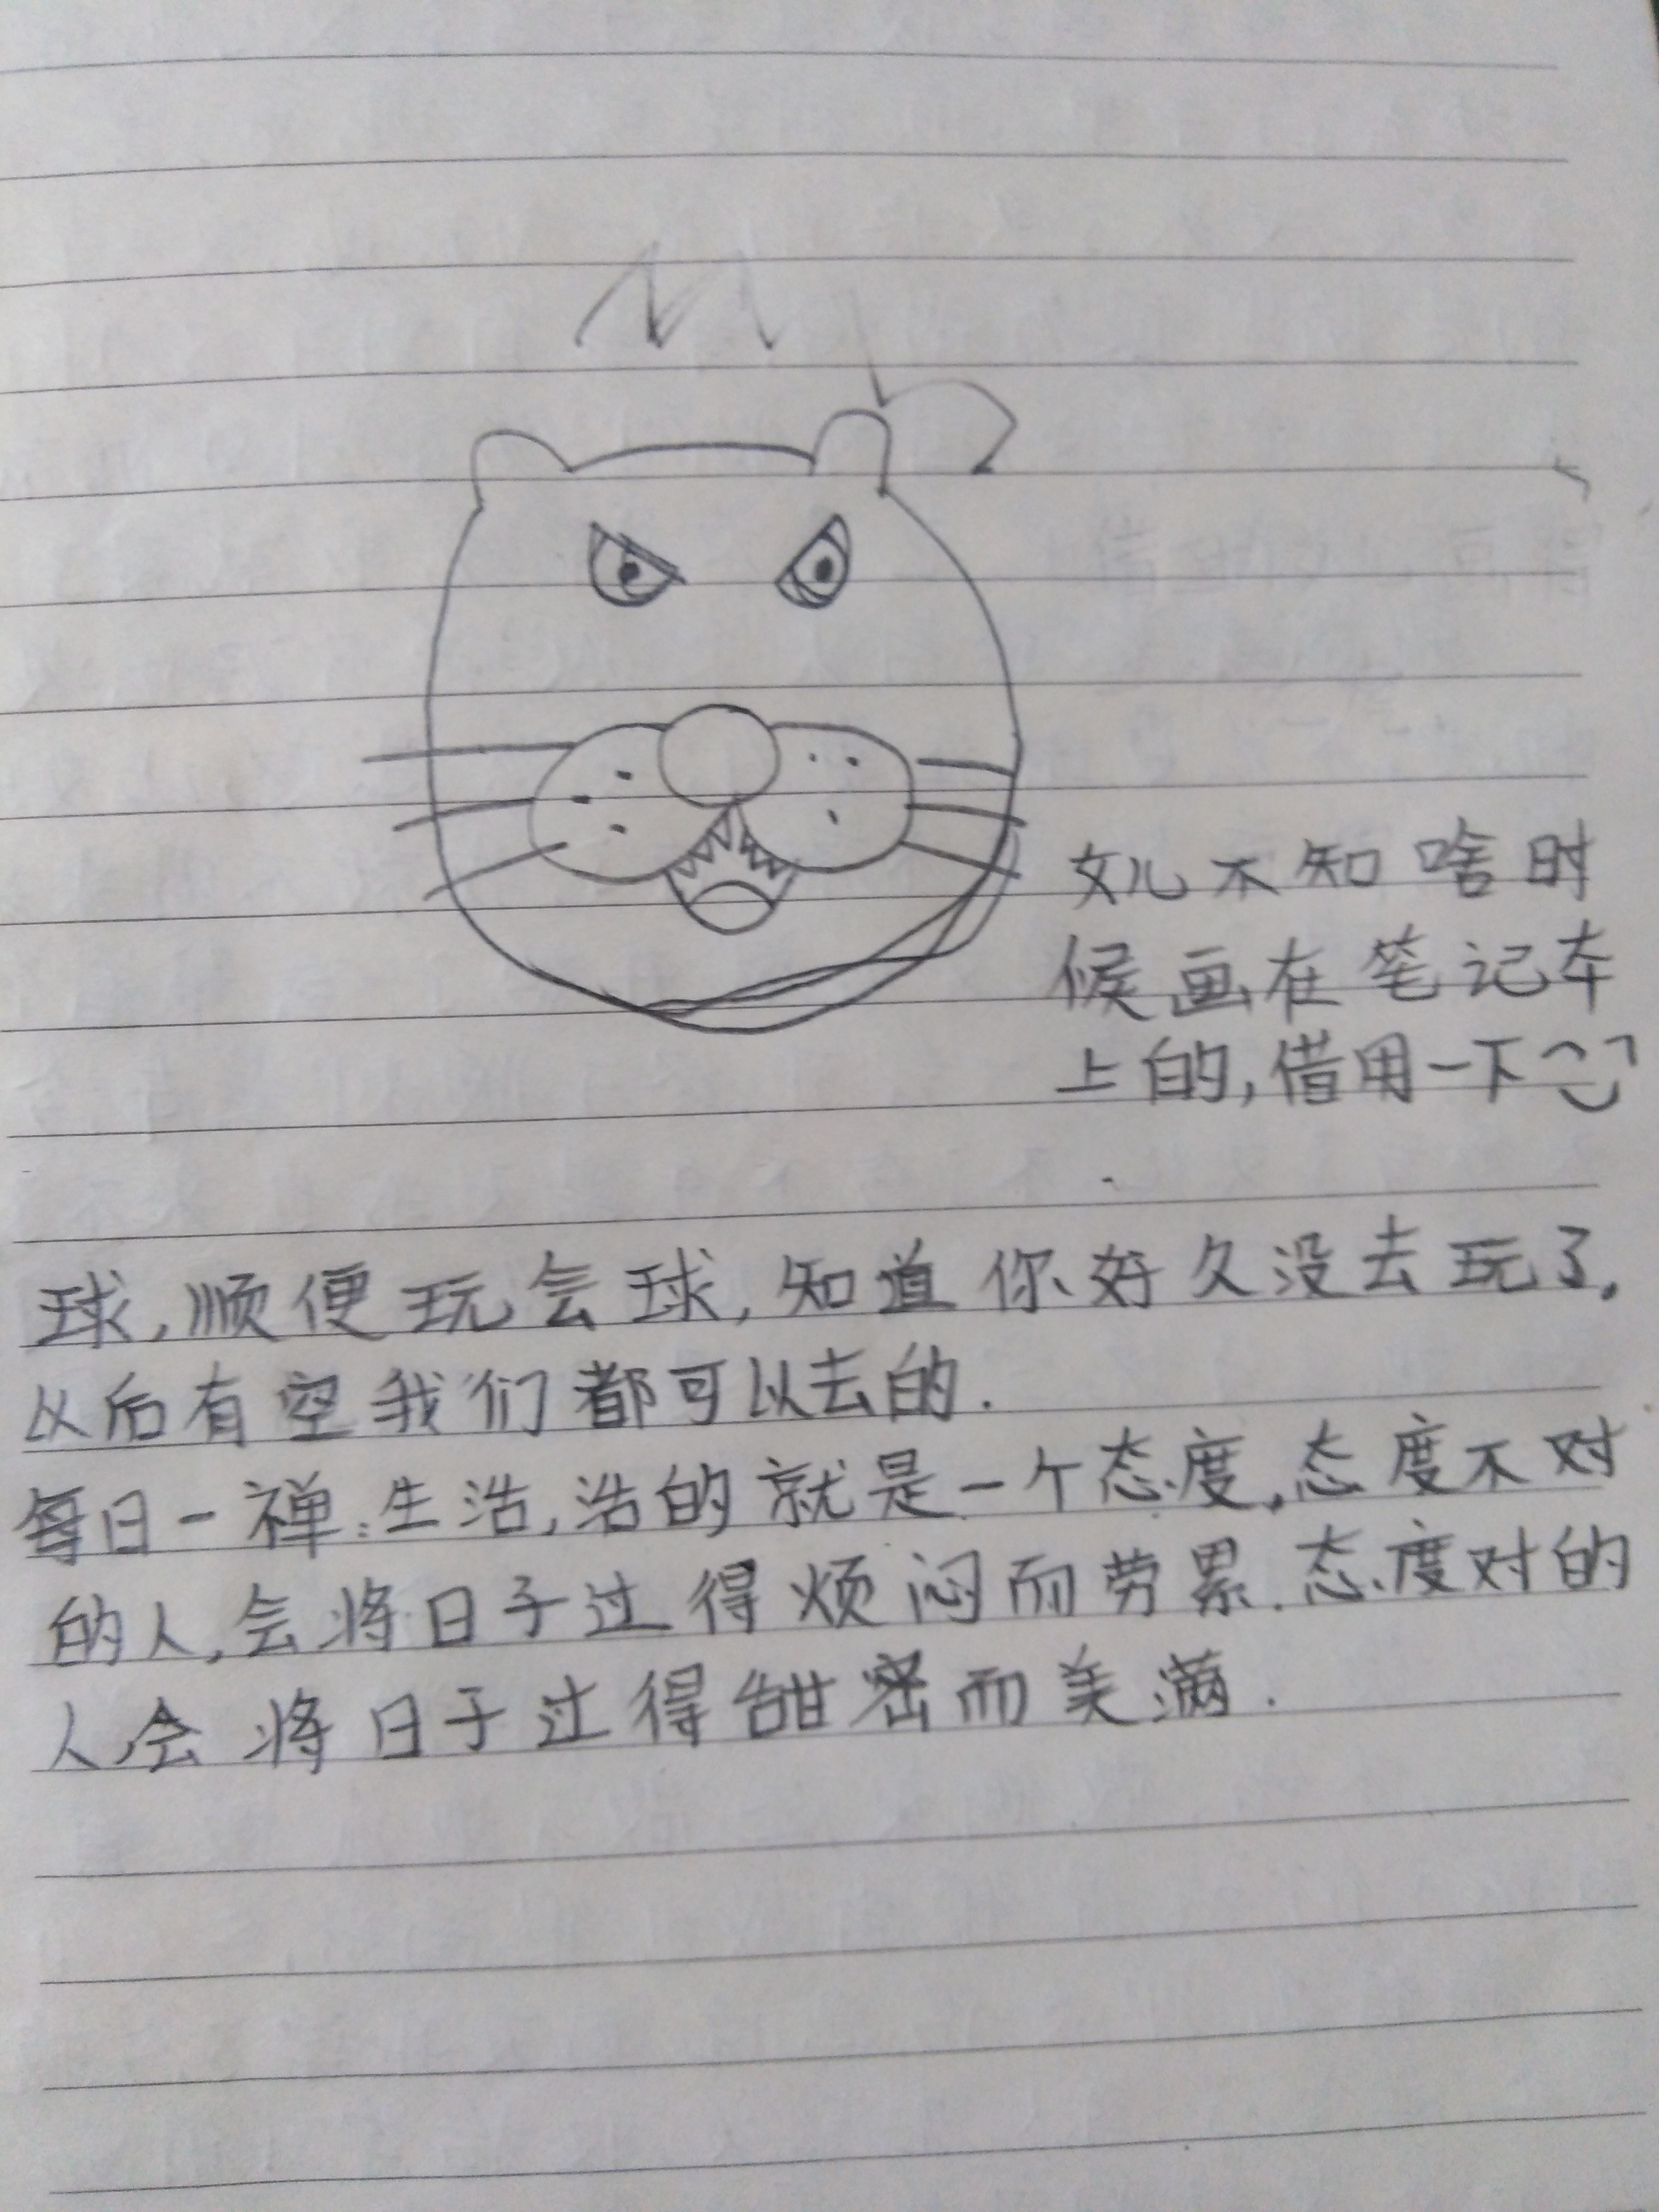 女儿不知啥时
候画在笔记本
上的,借用一下
球,顺便玩会球,知道你好久没去玩了,
以后有空我们都可以去的.
每日一禅:生活,活的就是一个态度,态度不对
的人,会将日子过得烦闷而劳累.态度对的
人会将日子过得甜密而美满.